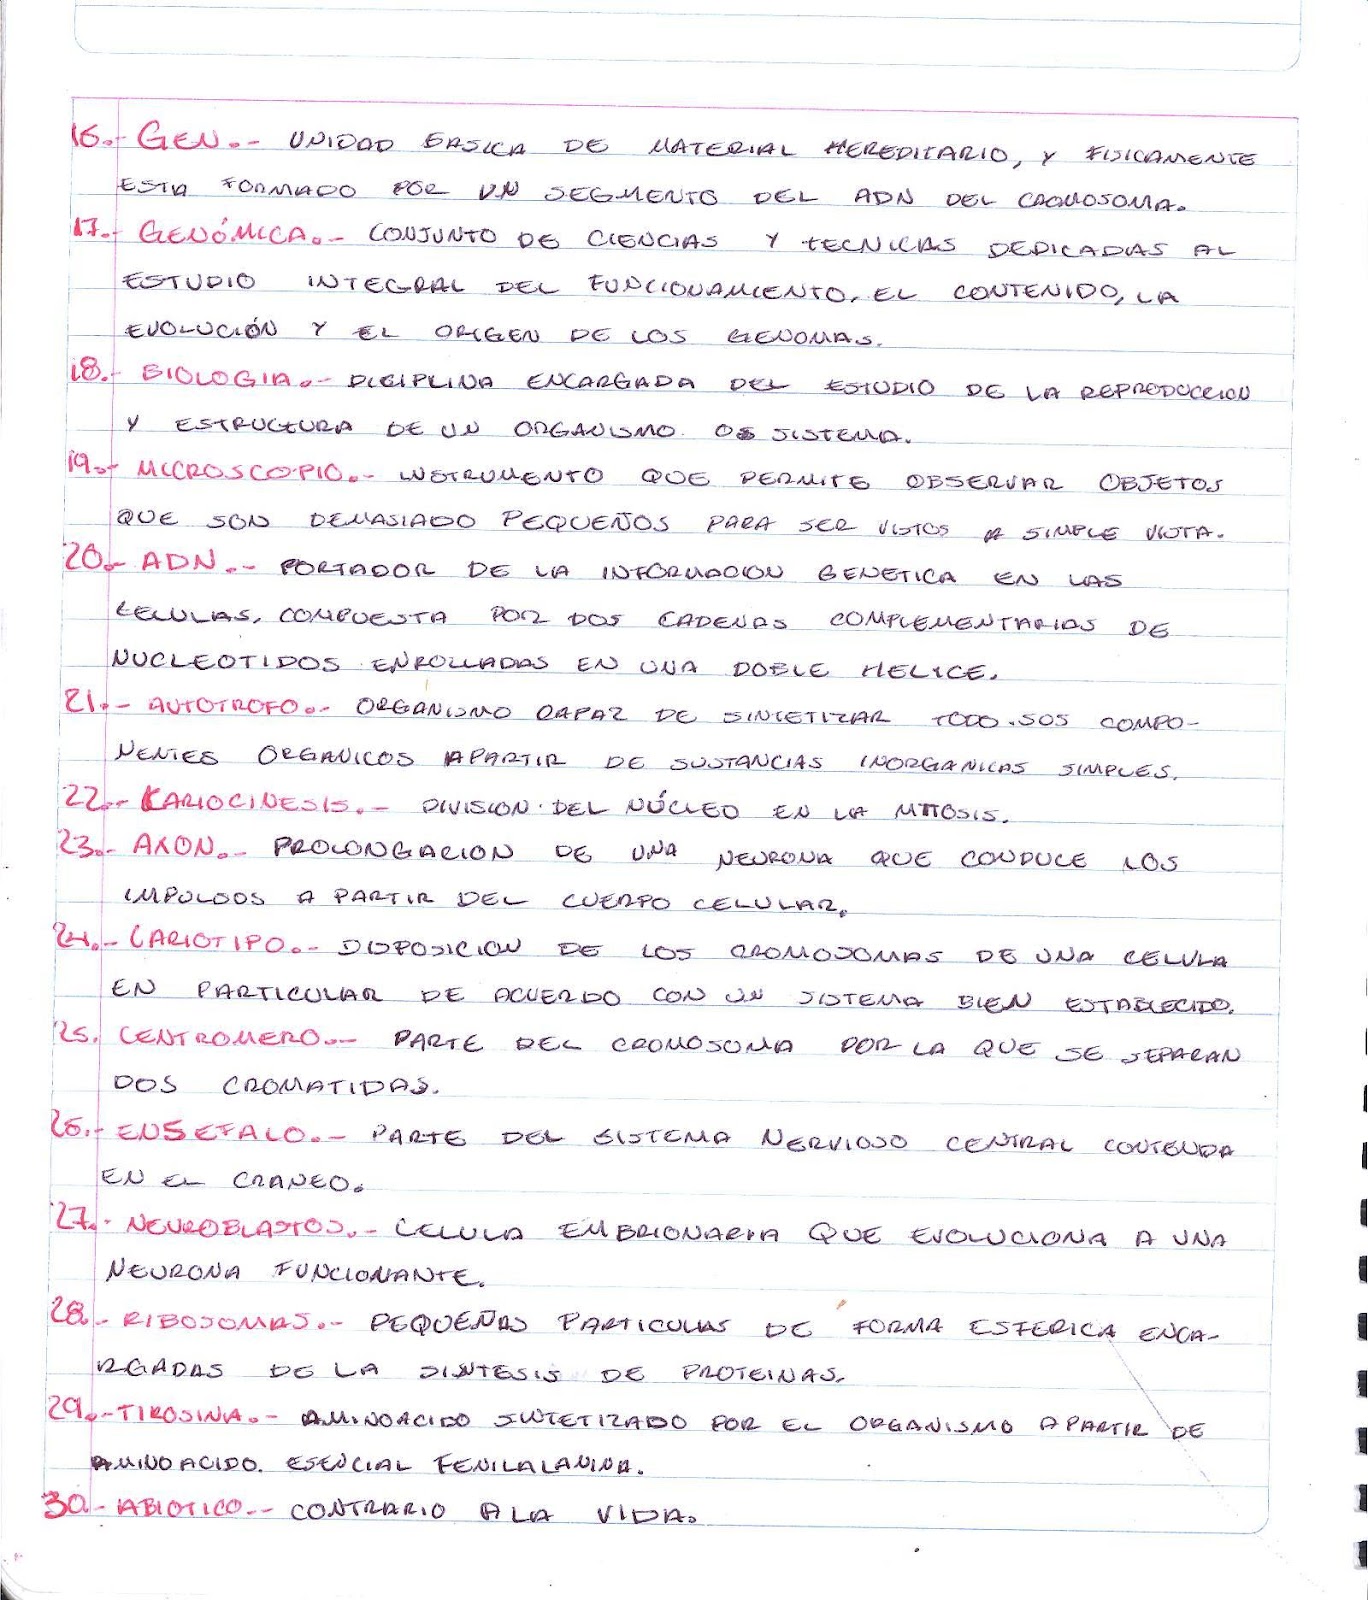 16.- GEN.- UNIDAD BASICA DE MATERIAL HEREDITARIO, Y FISICAMENTE
ESTA FORMADO POR UN SEGMENTO DEL ADN DEL CROMOSOMA.
17.- GENÓMICA.- CONJUNTO DE CIENCIAS Y TECNICAS DEDICADAS AL
ESTUDIO INTEGRAL DEL FUNCIONAMIENTO, EL CONTENIDO, LA
EVOLUCIÓN Y EL ORIGEN DE LOS GENOMAS.
18.- BIOLOGIA.- DICIPLINA ENCARGADA DEL ESTUDIO DE LA REPRODUCCION
Y ESTRUCTURA DE UN ORGANISMO O SISTEMA.
19.- MICROSCOPIO.- INSTRUMENTO QUE PERMITE OBSERVAR OBJETOS
QUE SON DEMASIADO PEQUEÑOS PARA SER VISTOS A SIMPLE VISTA.
20.- ADN.- PORTADOR DE LA INFORMACION GENETICA EN LAS
CELULAS, COMPUESTA POR DOS CADENAS COMPLEMENTARIAS DE
NUCLEOTIDOS ENROLLADAS EN UNA DOBLE HELICE.
21.- AUTOTROFO.- ORGANISMO CAPAZ DE SINTETIZAR TODO SOS COMPO-
NENTES ORGANICOS APARTIR DE SUSTANCIAS INORGANICAS SIMPLES.
22.- KARIOCINESIS.- DIVISION DEL NÚCLEO EN LA MITOSIS.
23.- AXON.- PROLONGACION DE UNA NEURONA QUE CONDUCE LOS
IMPULSOS A PARTIR DEL CUERPO CELULAR.
24.- CARIOTIPO.- DISPOSICION DE LOS CROMOSOMAS DE UNA CELULA
EN PARTICULAR DE ACUERDO CON UN SISTEMA BIEN ESTABLECIDO.
25. CENTROMERO.- PARTE DEL CROMOSOMA POR LA QUE SE SEPARAN
DOS CROMATIDAS.
26.- ENSEFALO.- PARTE DEL SISTEMA NERVIOSO CENTRAL CONTENIDA
EN EL CRANEO.
27.- NEUROBLASTOS.- CELULA EMBRIONARIA QUE EVOLUCIONA A UNA
NEURONA FUNCIONANTE.
28.- RIBOSOMAS.- PEQUEÑAS PARTICULAS DE FORMA ESFERICA ENCA-
RGADAS DE LA SINTESIS DE PROTEINAS.
29.- TIROSINA.- AMINOACIDO SINTETIZADO POR EL ORGANISMO APARTIR DE
AMINOACIDO. ESENCIAL FENILALANINA.
30.- ABIOTICO.- CONTRARIO A LA VIDA.